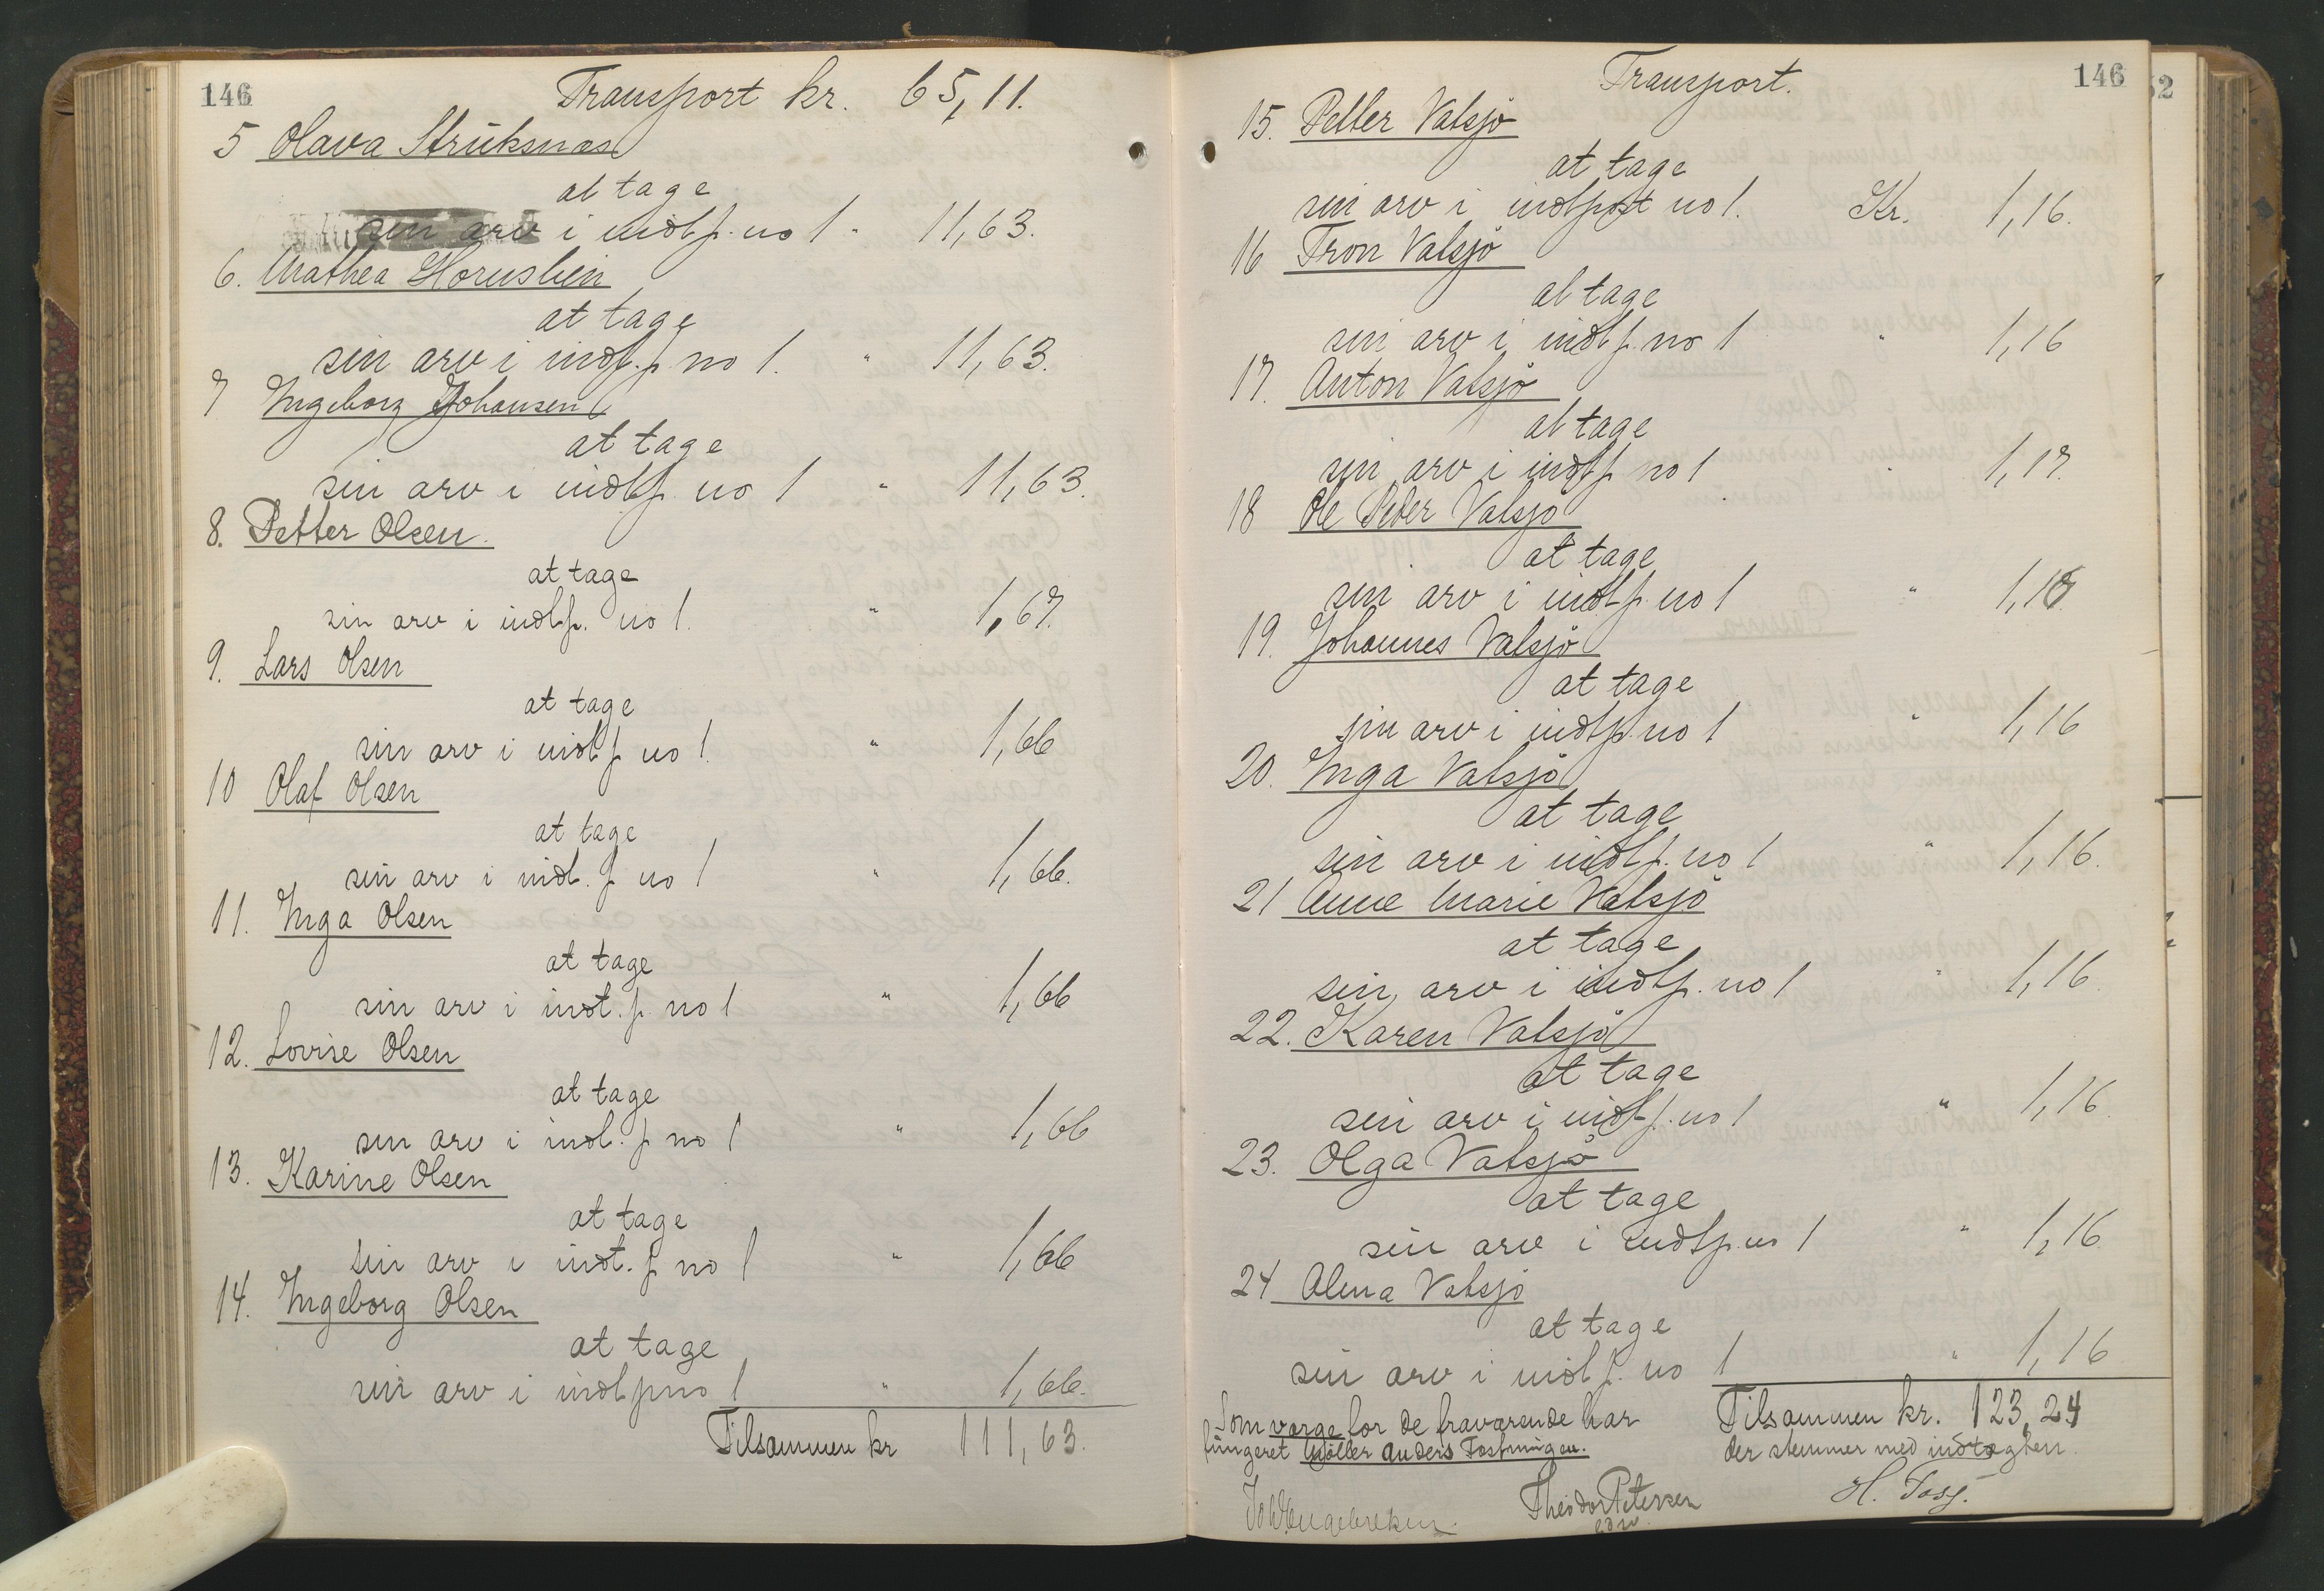 146
Transport kr. 65,11.
5 Olava Strüksnæs
at tage
sin arv i indtp. no 1 " 11,63.
6. Mathea Hornslien
at tage
sin arv i indt.p. no 1. " 11,63.
7 Ingeborg Johansen
at tage
sin arv i indtp. no 1 " 11,63.
8. Petter Olsen.
at tage
sin arv i indtp. no 1. " 1,67.
9. Lars Olsen
at tage
sin arv i indtp no 1. " 1,66
10 Olaf Olsen
at tage
sin arv i indt.p no 1 " 1,66.
11. Inga Olsen
at tage
sin arv i indt.p. no 1 " 1,66
12. Lovise Olsen
at tage
sin arv i indt.p no 1 " 1,66
13. Karine Olsen
at tage
sin arv i indt.p no 1 " 1,66
14. Ingeborg Olsen
at tage
sin arv i indtp no 1 " 1,66.
Tilsammen kr 111,63.
146
52
Transport.
15. Petter Vatsjö
at tage
sin arv i indtpost no 1. Kr. 1,16.
16 Tron Vatsjö
at tage
sin arv i indtp. no 1 " 1,16
17. Anton Vatsjö
at tage
sin arv i indtp no 1 " 1,17.
18 Ole Peder Vatsjö
at tage
sin arv i indtp. no 1 "
19. Johannes Vatsjö
at tage
sin arv i indtp. no 1 " 1,16
20. Inga Vatsjö
at tage
sin arv i indtp. no 1 " 1,16.
21 Anne Marie Vatsjö
at tage
sin arv i indtp. no 1 " 1,16.
22. Karen Vatsjö
at tage
sin arv i indtp. no 1 " 1,16.
23. Olga Vatsjö
at tage
sin arv i indtp. no 1 " 1,16.
24 Alma Vatsjö
at tage
sin arv i indtp. no 1 " 1,16
Tilsammen kr. 123,24
der stemmer med indtægten.
Som værge for de fraværende har
fungeret Möller Anders
Theodor Petersen
H.